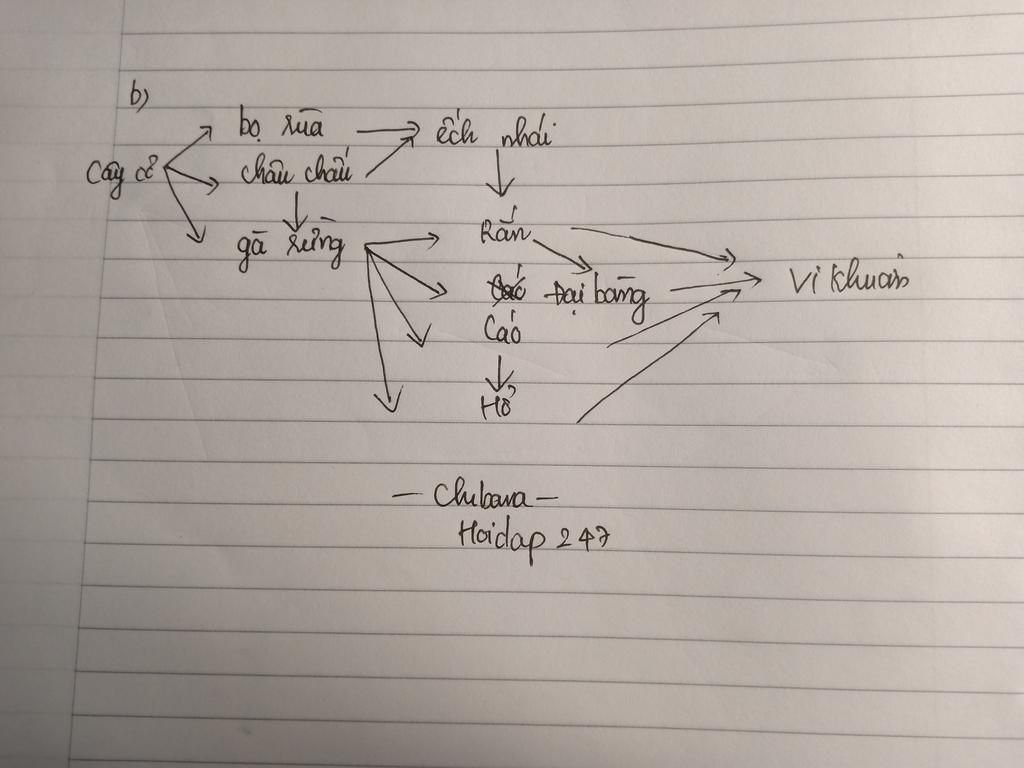 b)
bọ rùa → ếch nhái
Cây cỏ châu chấu
gà rừng Rắn
Đại bàng Vi khuẩn
Cáo
Hổ
— Chibana —
Hoidap 247